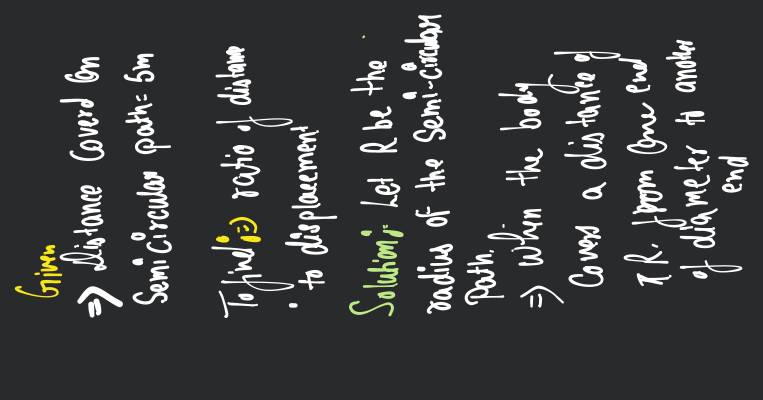 Given
=> distance Coverd On
Semi Circular path = 5m
To find :=> ratio of distance
to displacement
Solution :- Let R be the
radius of the Semi-Circular
path.
=> When the body
Covers a distance of
πR. from One end
of diameter to another
end